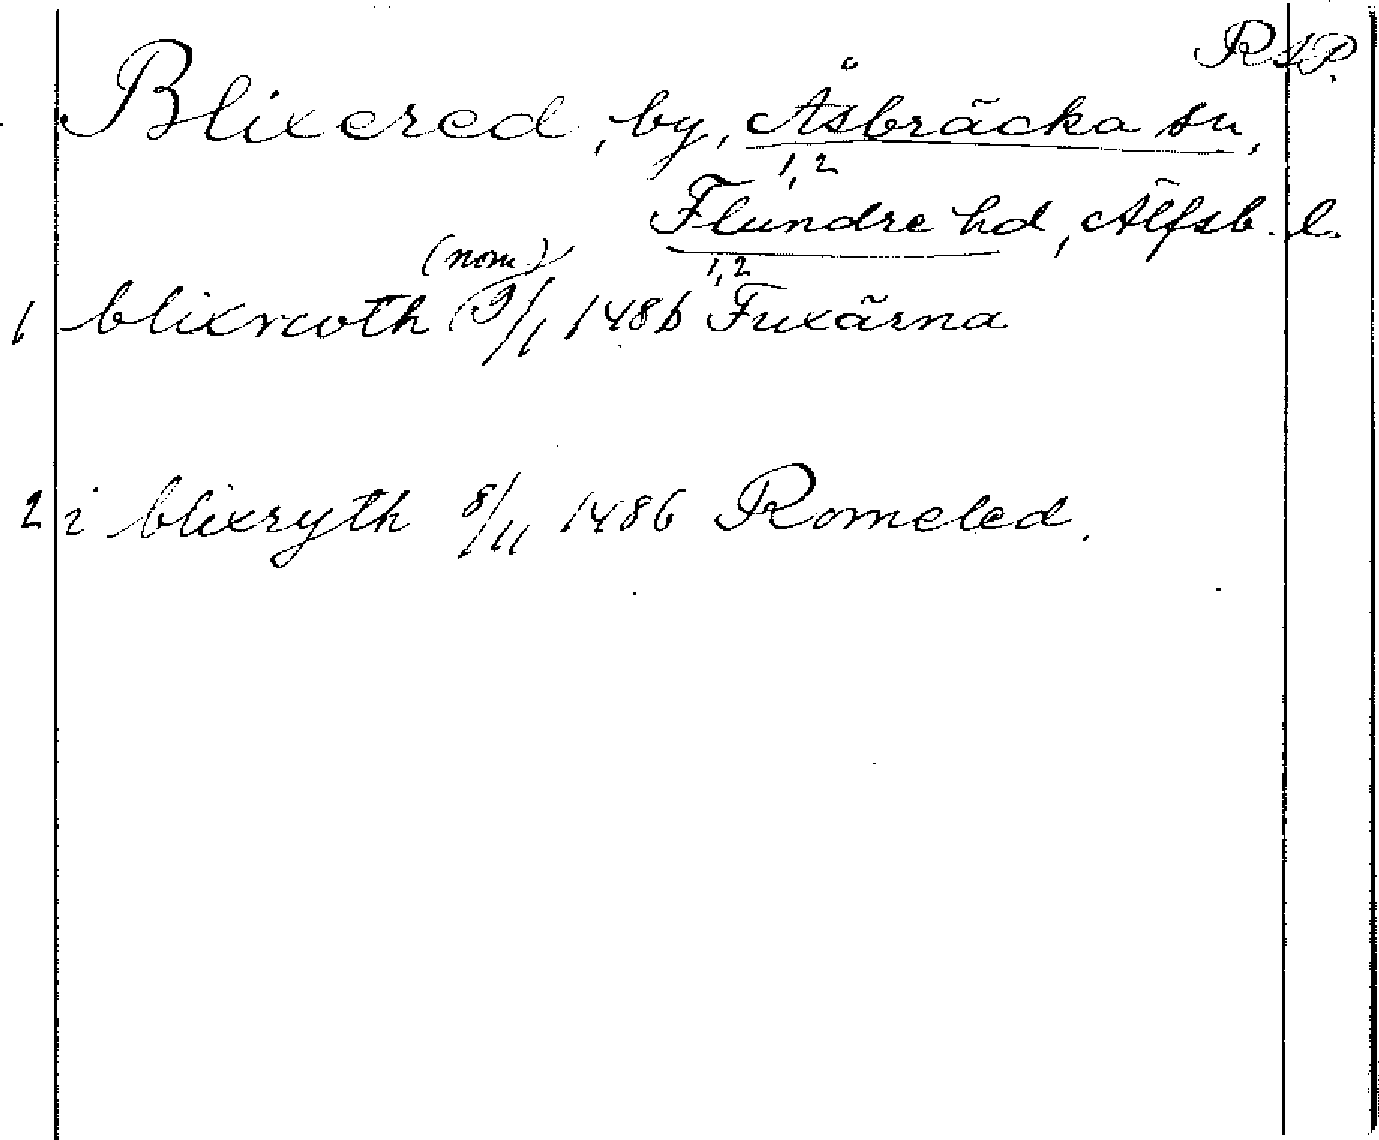 R
Blixered, by, Åsbräcka sn,
1,2
Flundre hd, Älfsb. l.
(nom) 1,2
1 blixrwth 9/1 1486 Fuxärna
2 i blixryth 8/11 1486 Romeled.